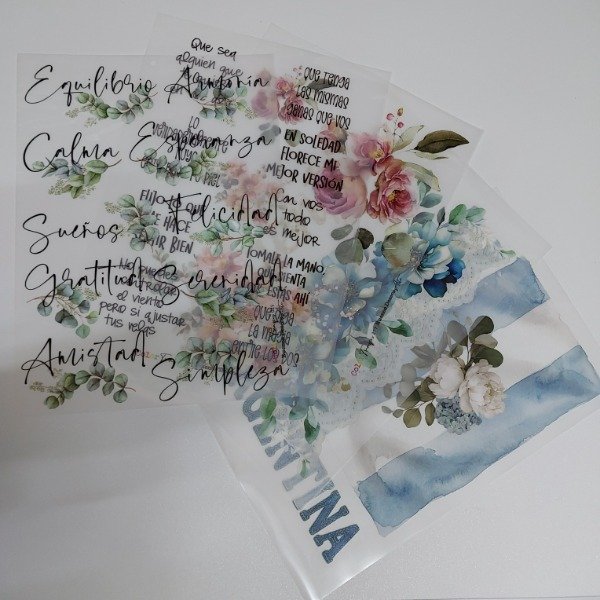 Equilibrio Armonía
Calma Esperanza
Sueños Felicidad
Gratitud Serenidad
Amistad
Simpleza
Que sea
alguien que
lo
ELIJO LO QUE
ME HACE
BIEN
NO PUEDO
el viento
pero si ajustar
tus velas
QUE TENGA
LAS MISMAS
GANAS QUE VOS
EN SOLEDAD
FLORECE MI
MEJOR VERSIÓN
Con vos
todo
es mejor
TOMALE LA MANO
ESTAS AHÍ
QUE SEA
LA MAGIA
ENTRE LOS DOS
ENTINA